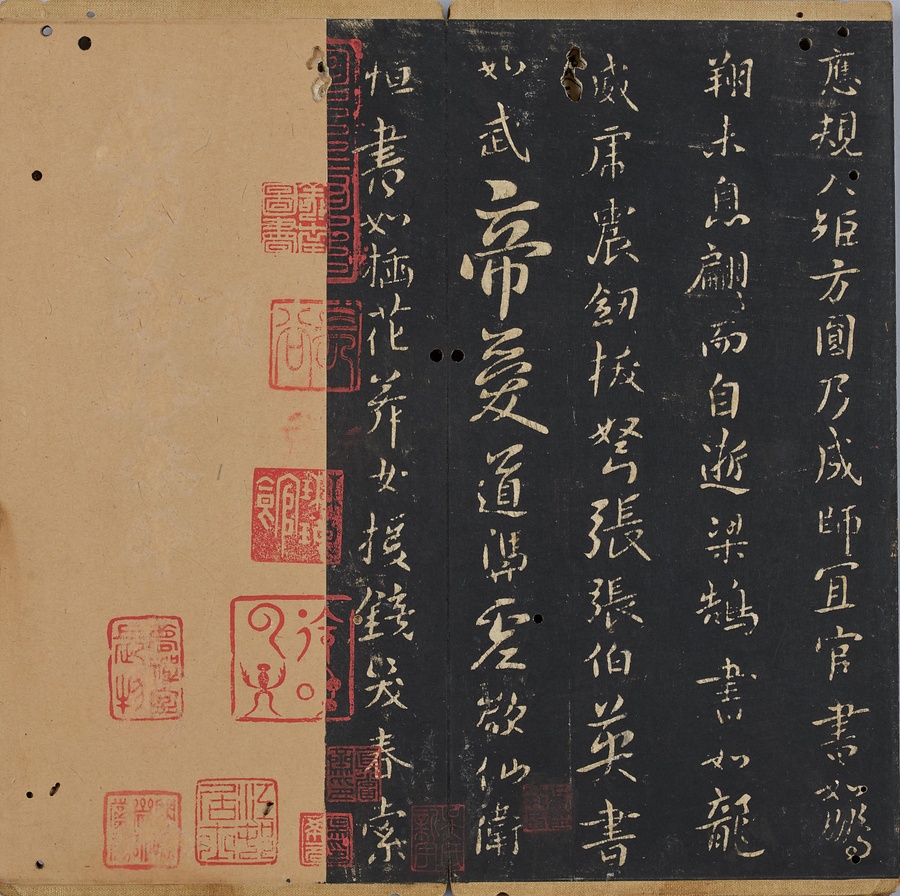 應規入矩方圓乃成師宜官書如鵬
翔未息翩〻而自逝梁鵠書如龍
威虎震釼拔弩張張伯英書
如武帝愛道馮虛欲仙衛
恒書如插花舞女援鏡笑春索